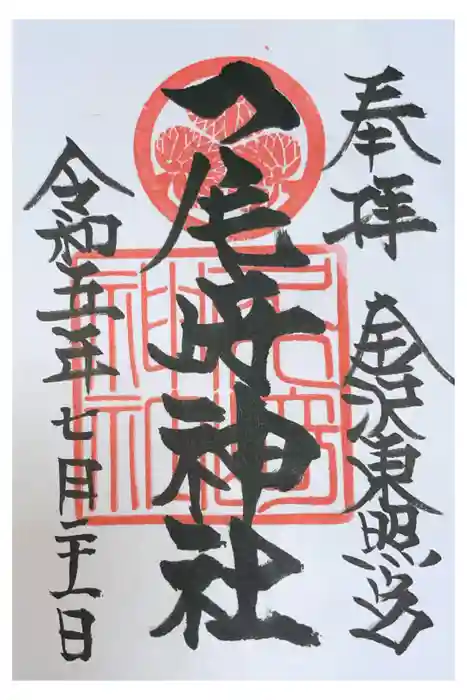 奉拝
金沢東照宮
尾崎神社
令和五年七月二十一日